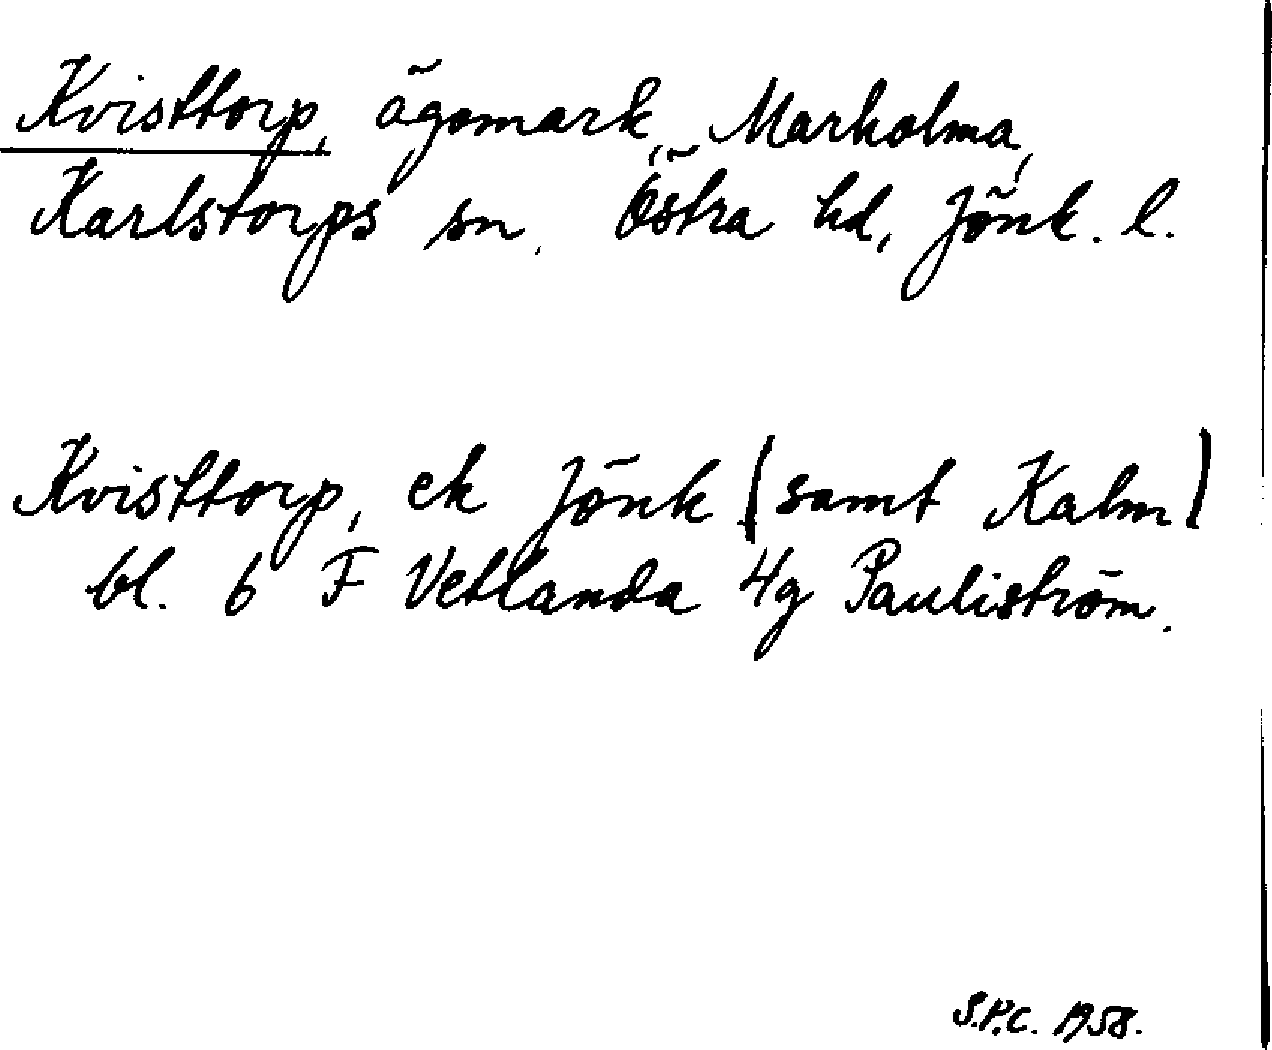 Kvisttorp, ägomark, Marholma,
Karlstorps sn. Östra hd, Jönk. l.
Kvisttorp, ek Jönk (samt Kalm)
bl. 6 F Vetlanda 4g Pauliström.
S.P.C. 1958.